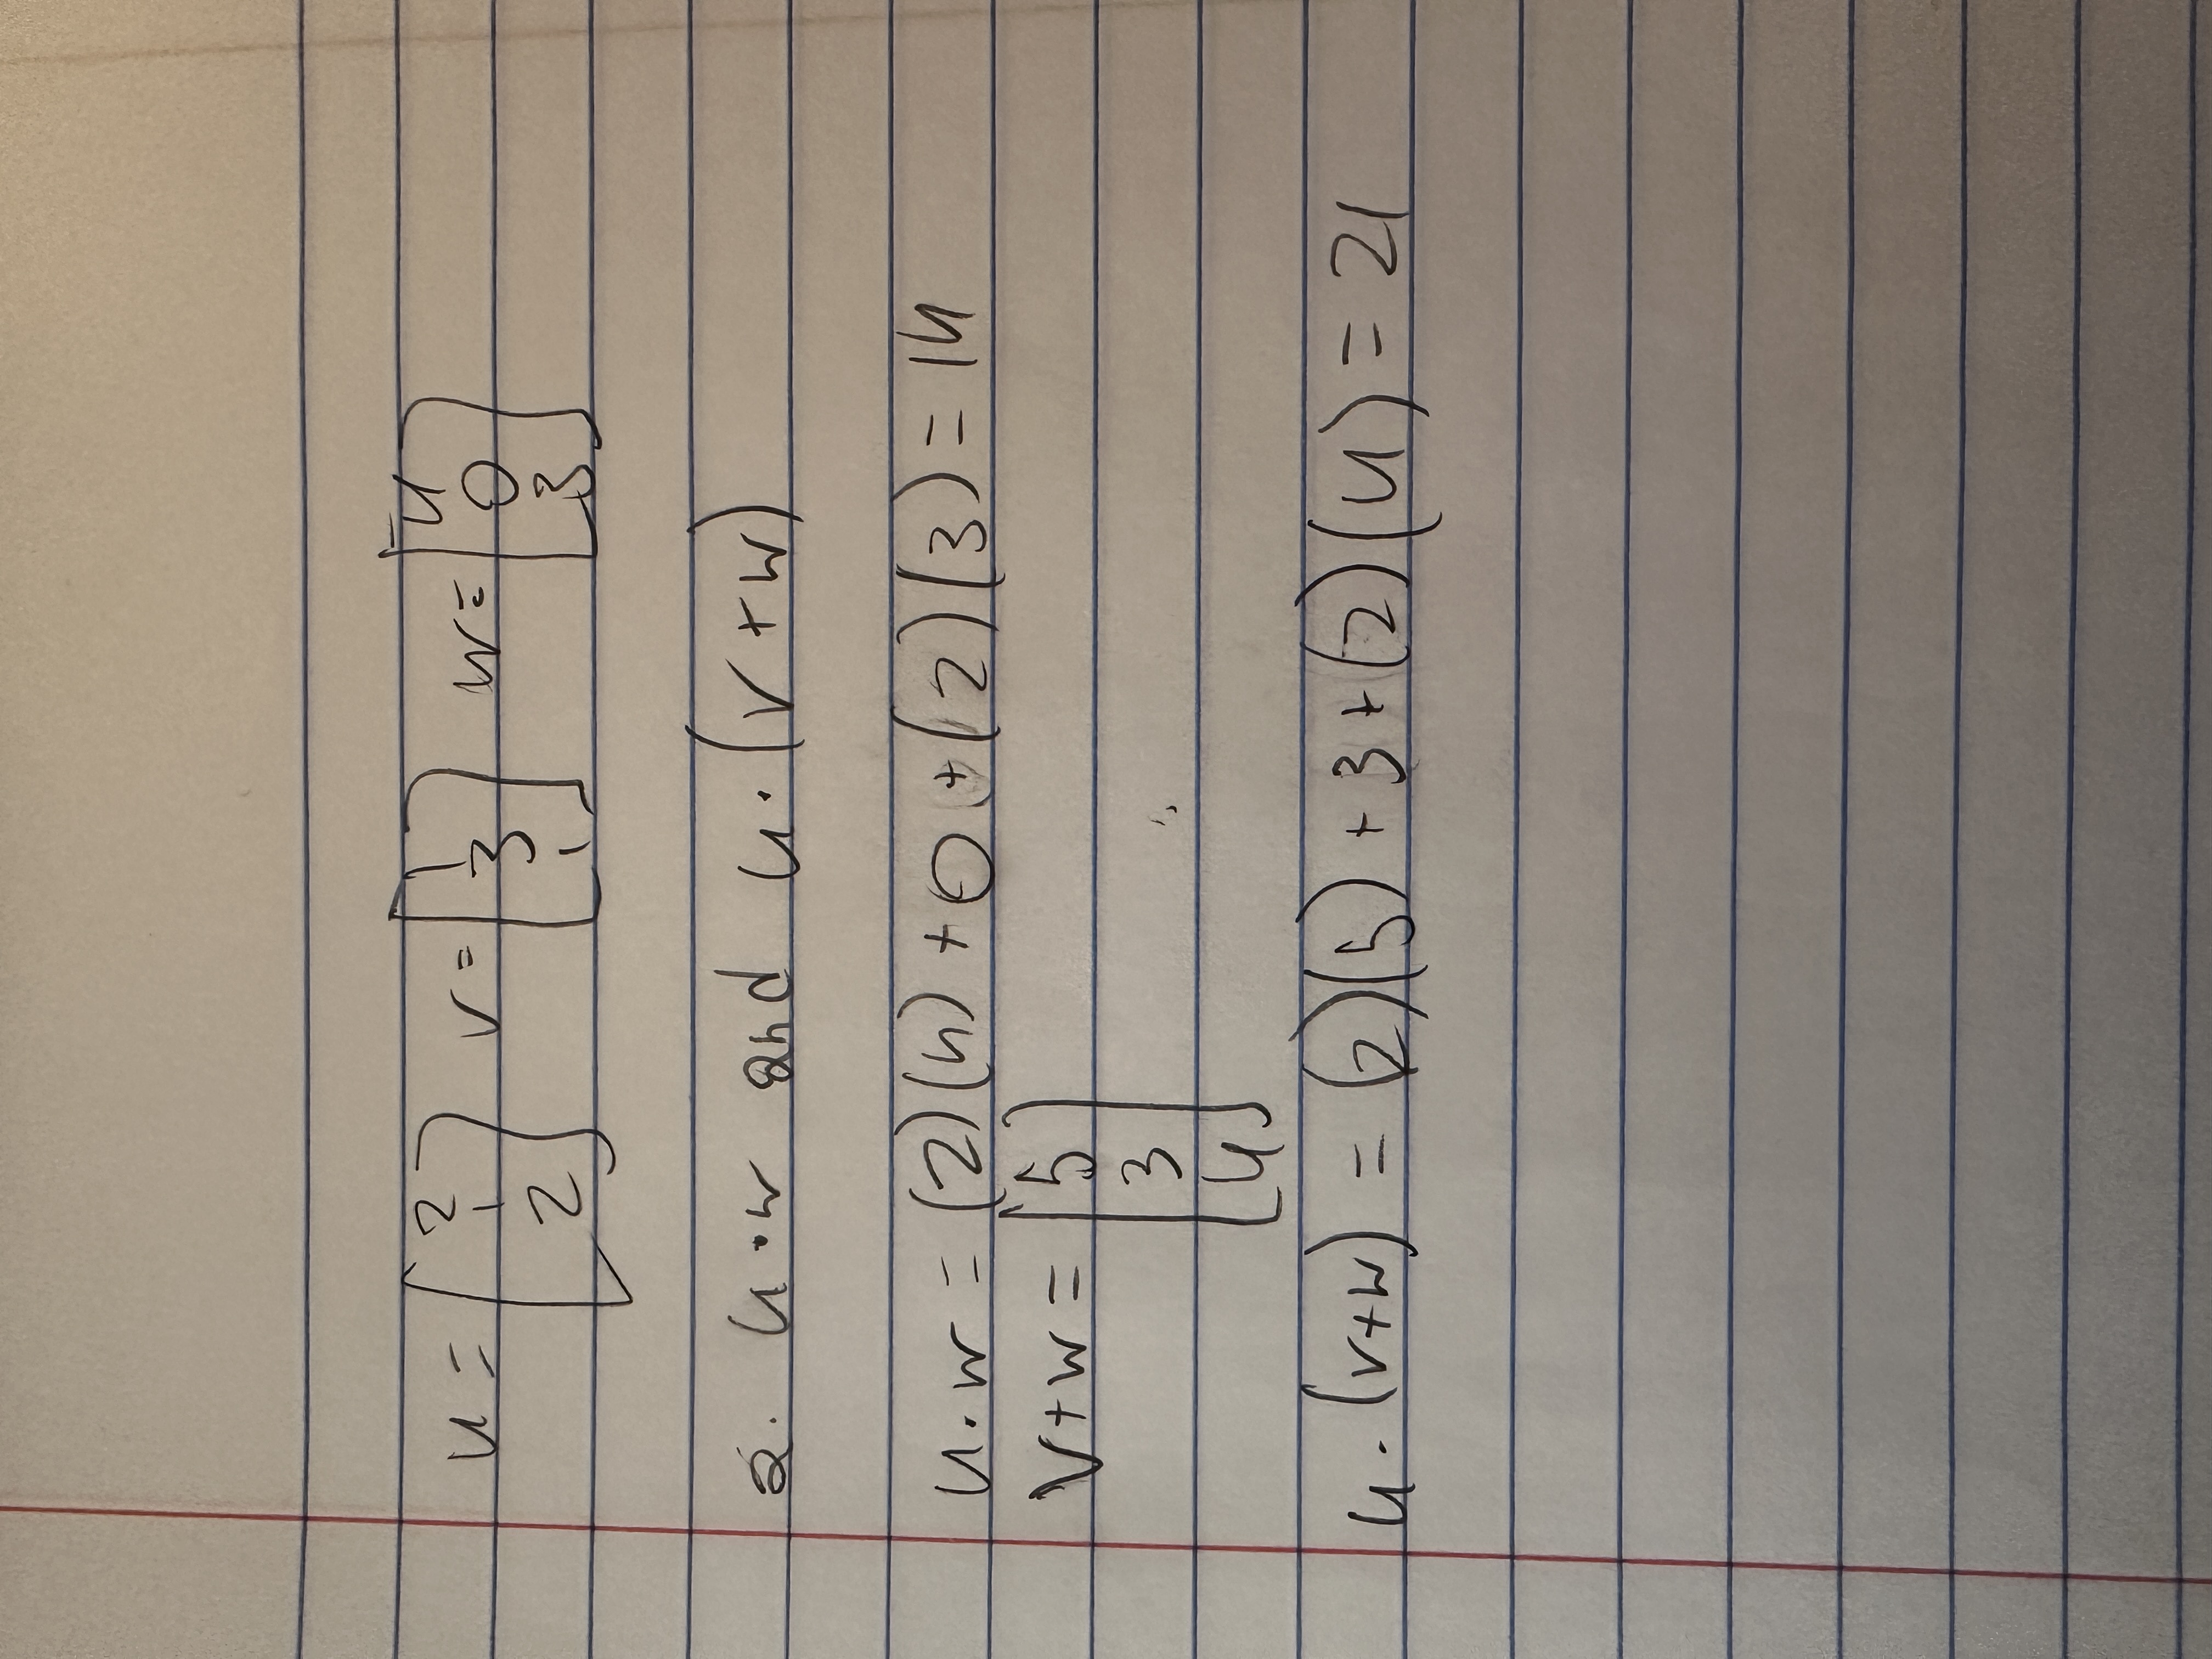 u = [2 1 2] v = [1 3 1] w = [4 0 3]
a. u · w and u · (v + w)
u · w = (2)(4) + 0 + (2)(3) = 14
v + w = [5 3 4]
u · (v + w) = (2)(5) + 3 + (2)(4) = 21